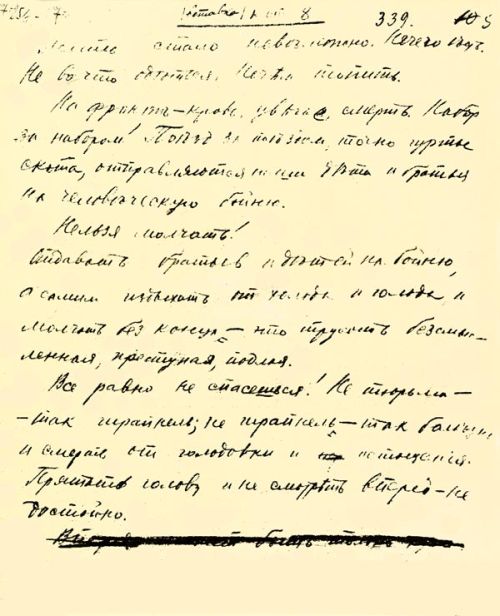 339.
Жить стало невозможно. Нечего ѣсть.
Не во что одѣться. Нечѣм топить.
На фронтѣ – кровь, увѣчье, смерть. Набор
за набором! Поѣзд за поѣздом, точно гурты
скота, отправляются наши дѣти и братья
на человѣческую бойню.
Нельзя молчать!
Отдавать братьев и дѣтей на бойню,
а самим издыхать от холода и голода и
молчать без конца – это трусость безсмыс-
ленная, преступная, подлая.
Все равно не спасешься! Не тюрьма –
– так шрапнель; не шрапнель – так болѣзнь,
и смерть от голодовки и истощения.
Прятать голову и не смотрѣть вперед – не
достойно.